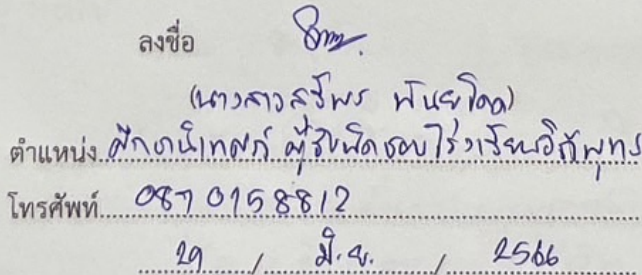 ลงชื่อ
(นางสาวสรีพร พันยุโดด)
ตำแหน่ง ศึกษานิเทศก์ ผู้รับผิดชอบโรงเรียนวิถีพุทธ
โทรศัพท์ 0870158812
29 / มิ.ย. / 2566